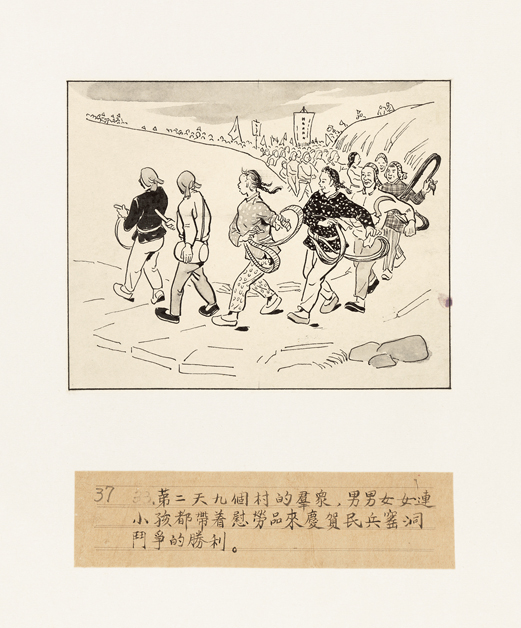 37 第二天九個村的羣眾，男男女女連
小孩都帶着慰勞品來慶賀民兵窰洞
鬥爭的勝利。